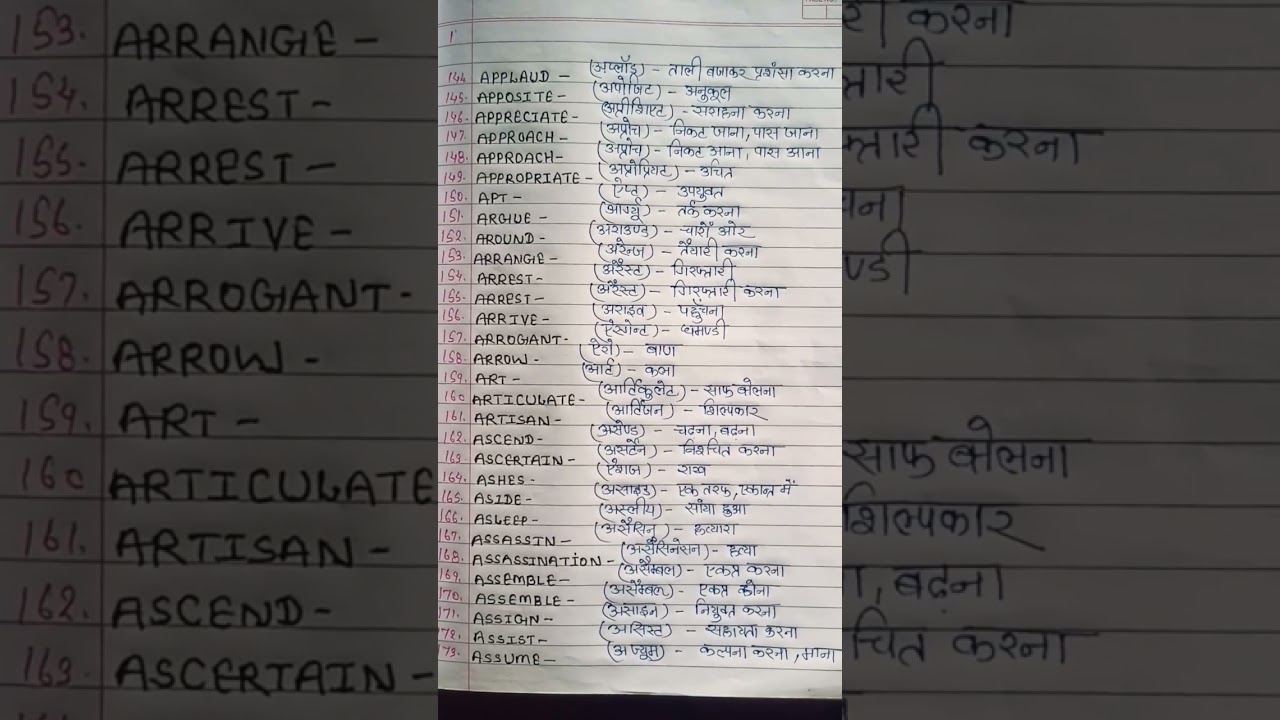 144. APPLAUD - (अप्लॉड) - ताली बजाकर प्रशंसा करना
145. APPOSITE - (अपोजिट) - अनुकूल
146. APPRECIATE - (अप्रीशिएट) - सराहना करना
147. APPROACH - (अप्रोच) - निकट जाना, पास जाना
148. APPROACH - (अप्रोच) - निकट आना, पास आना
149. APPROPRIATE - (अप्रोप्रियट) - उचित
150. APT - (ऐप्ट) - उपयुक्त
151. ARGUE - (आर्ग्यू) - तर्क करना
152. AROUND - (अराउण्ड) - चारों ओर
153. ARRANGE - (अरेन्ज) - तैयारी करना
154. ARREST - (अरैस्ट) - गिरफ्तारी
155. ARREST - (अरैस्ट) - गिरफ्तारी करना
156. ARRIVE - (अराइव) - पहुंचना
157. ARROGANT - (ऐरोगेन्ट) - घमण्डी
158. ARROW - (ऐरो) - बाण
159. ART - (आर्ट) - कला
160 ARTICULATE - (आर्टिकुलेट) - साफ बोलना
161. ARTISAN - (आर्टिजन) - शिल्पकार
162. ASCEND - (असेण्ड) - चढ़ना, बढ़ना
163. ASCERTAIN - (असर्टेन) - निश्चित करना
164. ASHES - (ऐशज) - राख
165. ASIDE - (असाइड) - एक तरफ, एकान्त में
166. ASLEEP - (अस्लीप) - सोया हुआ
167. ASSASSIN - (असैसिन) - हत्यारा
168. ASSASSINATION - (असैसिनेसन) - हत्या
169. ASSEMBLE - (असैम्बल) - एकत्र करना
170. ASSEMBLE - (असैम्बल) - एकत्र होना
171. ASSIGN - (असाइन) - नियुक्त करना
172. ASSIST - (असिस्ट) - सहायता करना
173. ASSUME - (अज्यूम) - कल्पना करना, माना